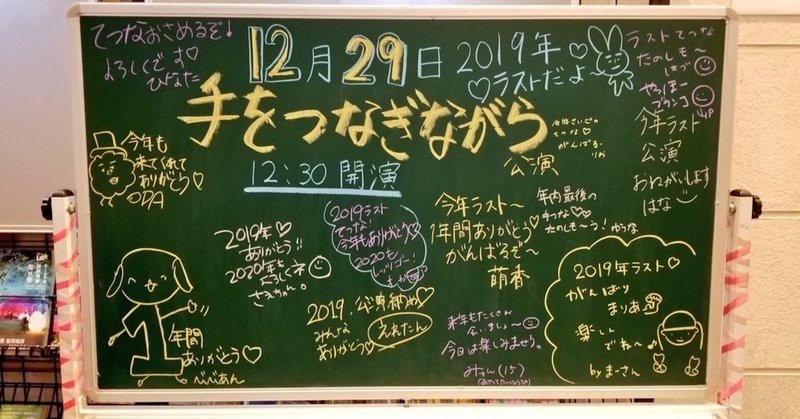 てつなおさめるぞ!
よろしくです♡
ひなた
12月29日 2019年♡
♡ラストだよ
ラストてつな
たのしも〜
はづ
やっほー
ブランコ
手をつなぎながら
公演
12:30 開演
今年さいごの
てつな♡
がんばる
りか
今年ラスト
公演
おねがいします
はな
今年も
来てくれて
ありがとう♡
ODA
2019年♡
ありがとう!!
2020年も
よろしくネ
さえちゃん。
2019ラスト
てつな
今年もありがとう♡
2020も
レッツゴー!
今年ラスト〜
1年間ありがとう♡
がんばるぞ〜
萌香
年内最後の
手つな♡♡
たのしも〜う!
ゆうな
1年間
ありがとう♡
べびあん
2019.公演納め♡
みんな
ありがとう♡
えれたん
来年もたくさん
会いましょ〜
今日は楽しみませう。
みずん(15)
2019年ラスト♡
がんばり
まりあ
楽しん
でね〜♪
byまーさん